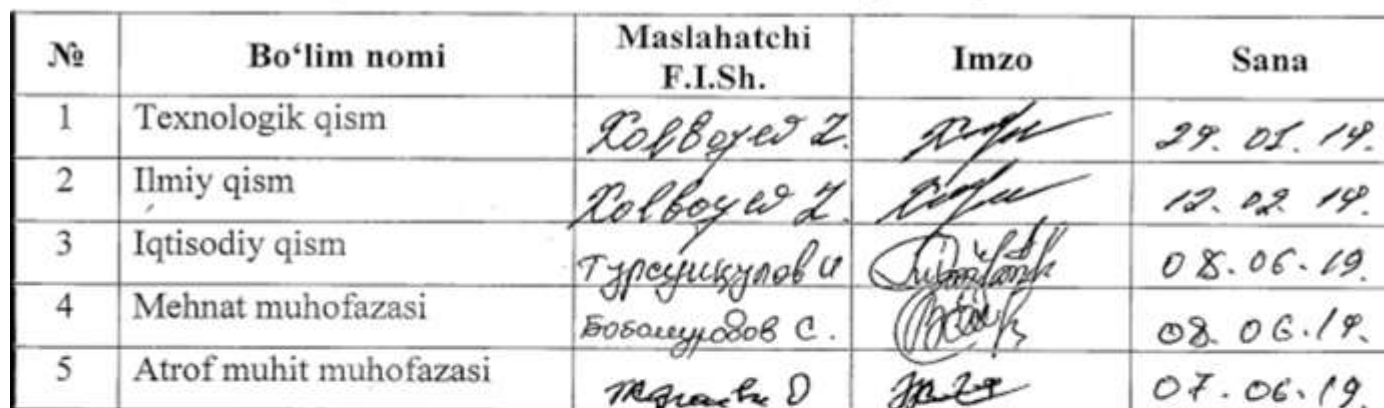 № Bo‘lim nomi Maslahatchi F.I.Sh. Imzo Sana
1 Texnologik qism Xolboyev Z. 29. 01. 19.
2 Ilmiy qism Xolboyev Z. 12. 02. 19.
3 Iqtisodiy qism Турсункулов И 08. 06. 19.
4 Mehnat muhofazasi Бобомуродов С. 08. 06. 19.
5 Atrof muhit muhofazasi 07. 06. 19.